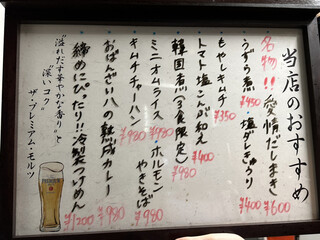 当店のおすすめ
名物!!愛情だしまき ¥600
うずら煮 ¥450 ・塩だれきゅうり ¥400
もやしキムチ ¥350
トマト塩こんが和え ¥400
韓国煮(3食限定)
ミニオムライス ¥980 ・ホルモンやきそば ¥980
キムチチャーハン ¥980
おばんざい八の熟成カレー ¥980
締めにぴったり!!冷製つけめん ¥1200
"溢れだす華やかな香り"と
"深いコク"
ザ・プレミアム・モルツ